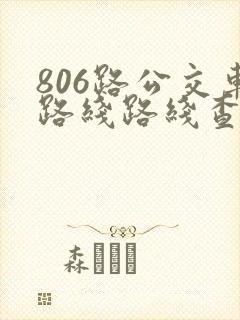 806路公交車
路綫路綫查
森